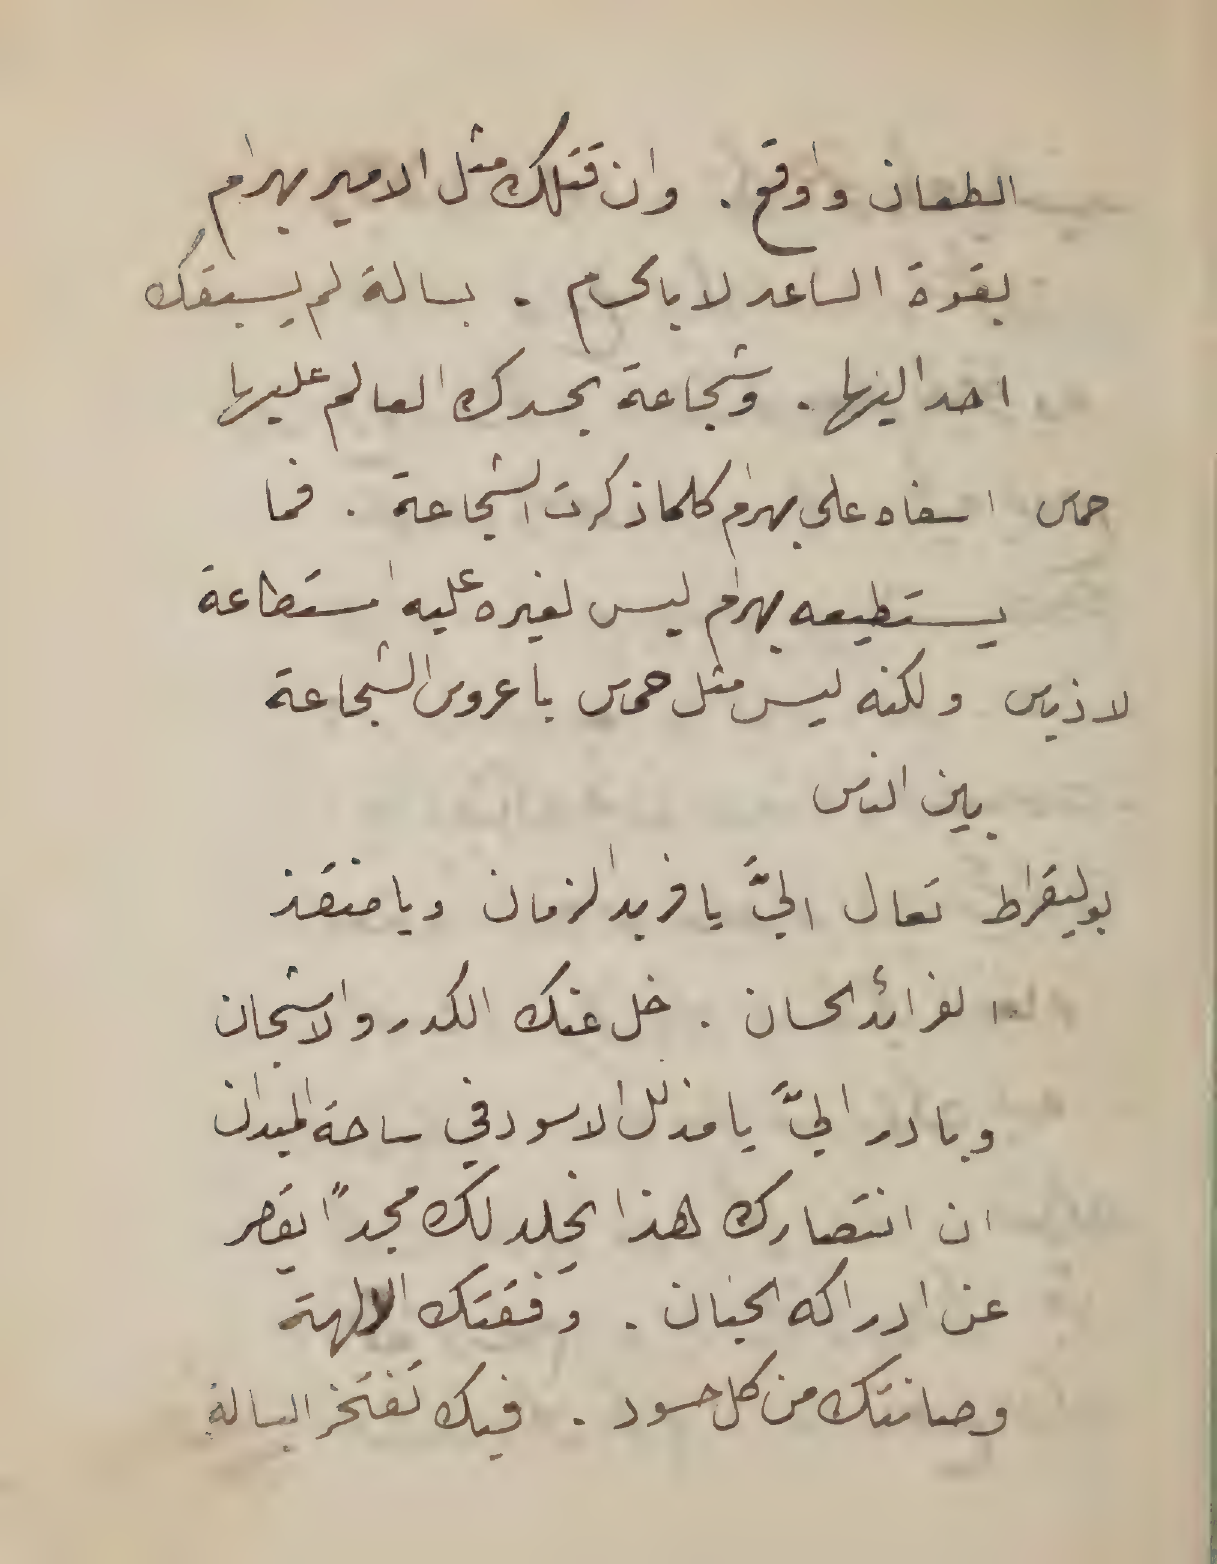 الطعان واقع . وان قتلك مثل الامير بهرام
بقوة الساعد لا بالحسام . بسالة لم يسبقك
احد اليها . وشجاعة يحسدك العالم عليها
حماس اسفاه على بهرام كلما ذكرت الشجاعة . فما
يستطيعه بهرام ليس لغيره عليه استطاعة
لاذياس ولكنه ليس مثل حماس يا عروس الشجاعة
بين الناس
بوليقراط تعال اليَّ يا فريد الزمان ويا منقذ
الفرائد الحسان . خل عنك الكدر والاشجان
وبادر اليَّ يا مذلل الاسود في ساحة الميدان
ان انتصارك هذا يخلد لك مجداً يقصر
عن ادراكه الجنان . وفقتك الالهة
وصانتك من كل حسود . فبك تفتخر البسالة